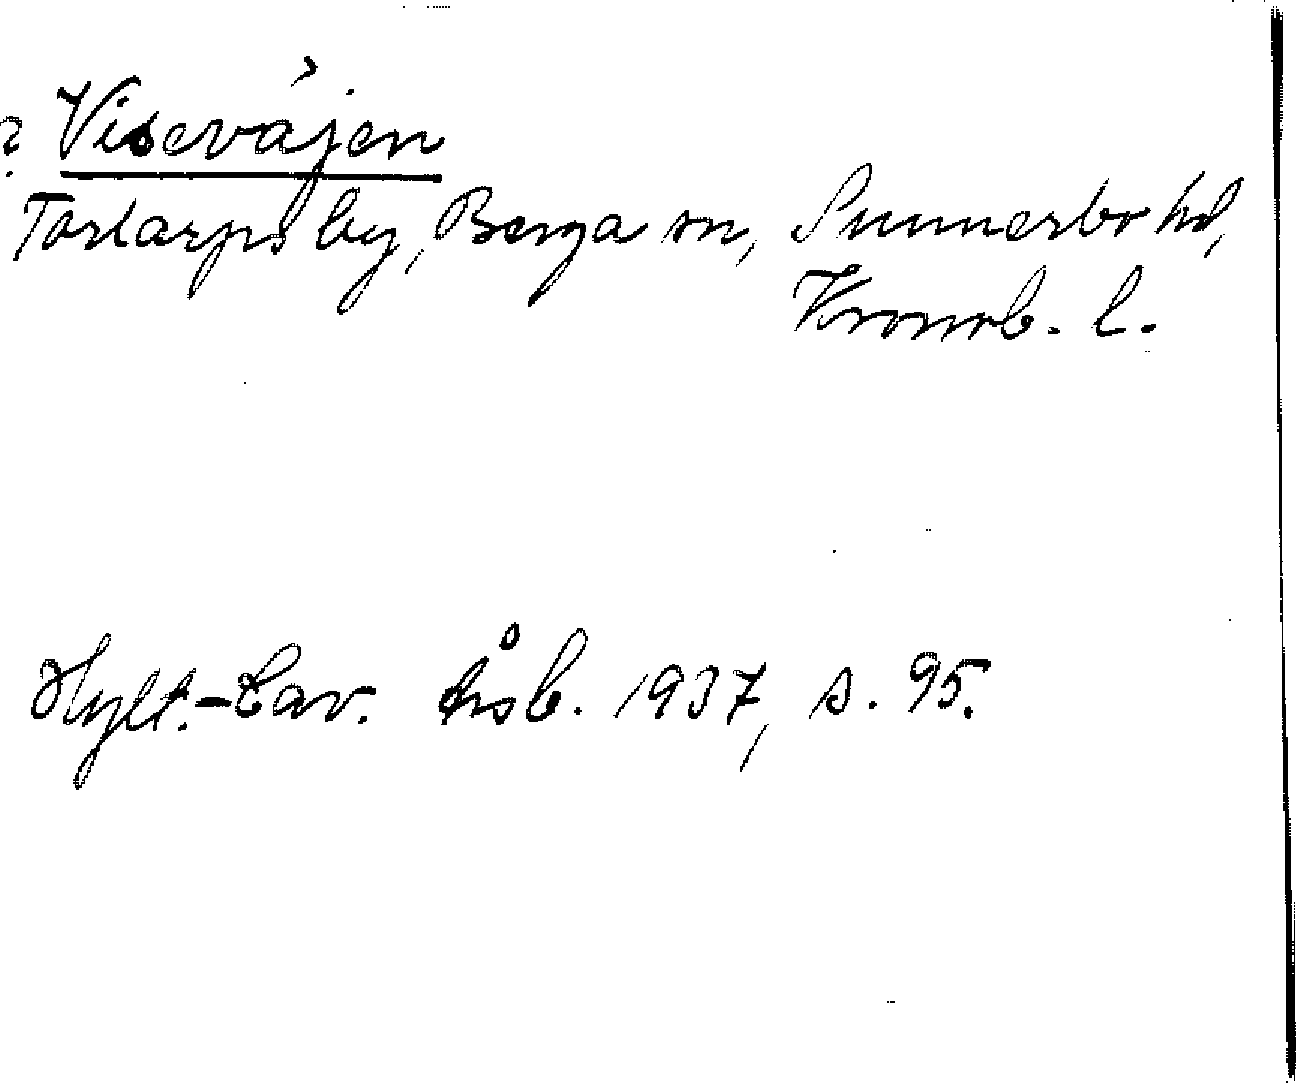 ? Visevåjen
Torlarps by, Berga sn, Sunnerbo hd,
Kronob. l.
Hylt.-Cav. årsb. 1937, s. 95.